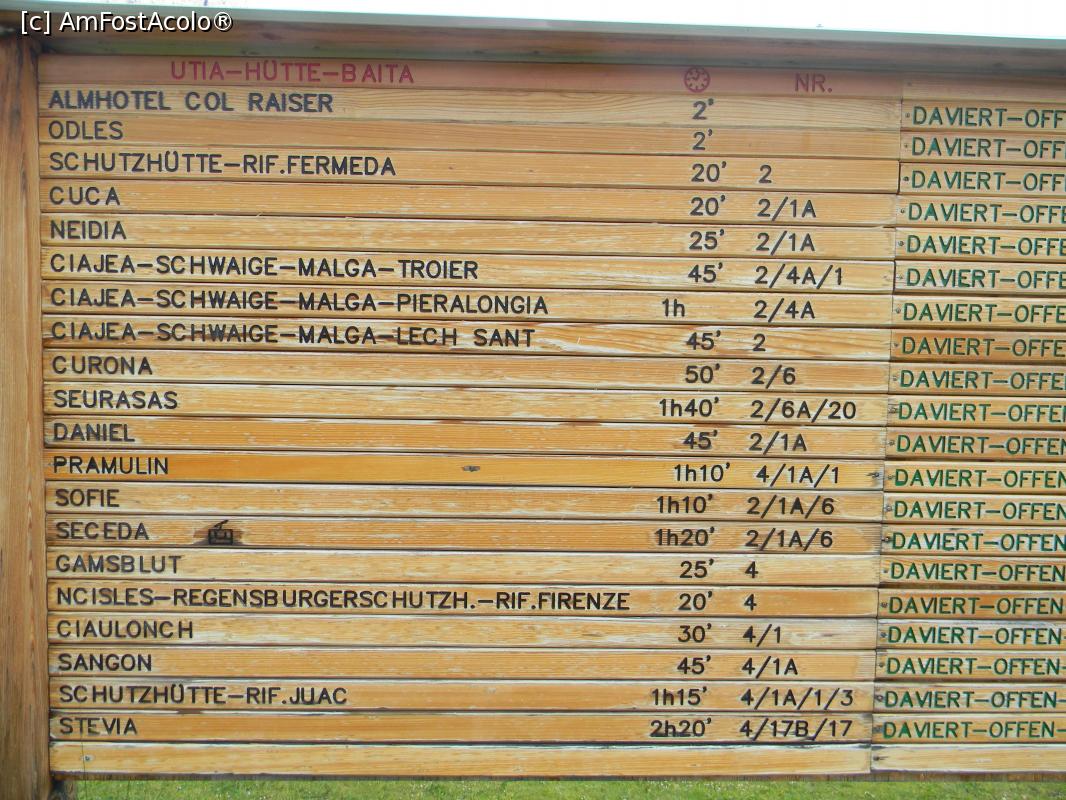 [c] AmFostAcolo®
UTIA-HÜTTE-BAITA NR.
ALMHOTEL COL RAISER 2' DAVIERT-OFF
ODLES 2' DAVIERT-OFF
SCHUTZHÜTTE-RIF.FERMEDA 20' 2 DAVIERT-OFF
CUCA 20' 2/1A DAVIERT-OFFE
NEIDIA 25' 2/1A DAVIERT-OFFE
CIAJEA-SCHWAIGE-MALGA-TROIER 45' 2/4A/1 DAVIERT-OFFE
CIAJEA-SCHWAIGE-MALGA-PIERALONGIA 1h 2/4A DAVIERT-OFFE
CIAJEA-SCHWAIGE-MALGA-LECH SANT 45' 2 DAVIERT-OFFE
CURONA 50' 2/6 DAVIERT-OFFE
SEURASAS 1h40' 2/6A/20 DAVIERT-OFFEN
DANIEL 45' 2/1A DAVIERT-OFFEN
PRAMULIN 1h10' 4/1A/1 DAVIERT-OFFEN
SOFIE 1h10' 2/1A/6 DAVIERT-OFFEN
SECEDA 1h20' 2/1A/6 DAVIERT-OFFEN
GAMSBLUT 25' 4 DAVIERT-OFFEN
NCISLES-REGENSBURGERSCHUTZH.-RIF.FIRENZE 20' 4 DAVIERT-OFFEN
CIAULONCH 30' 4/1 DAVIERT-OFFEN-
SANGON 45' 4/1A DAVIERT-OFFEN-
SCHUTZHÜTTE-RIF.JUAC 1h15' 4/1A/1/3 DAVIERT-OFFEN-
STEVIA 2h20' 4/17B/17 DAVIERT-OFFEN-